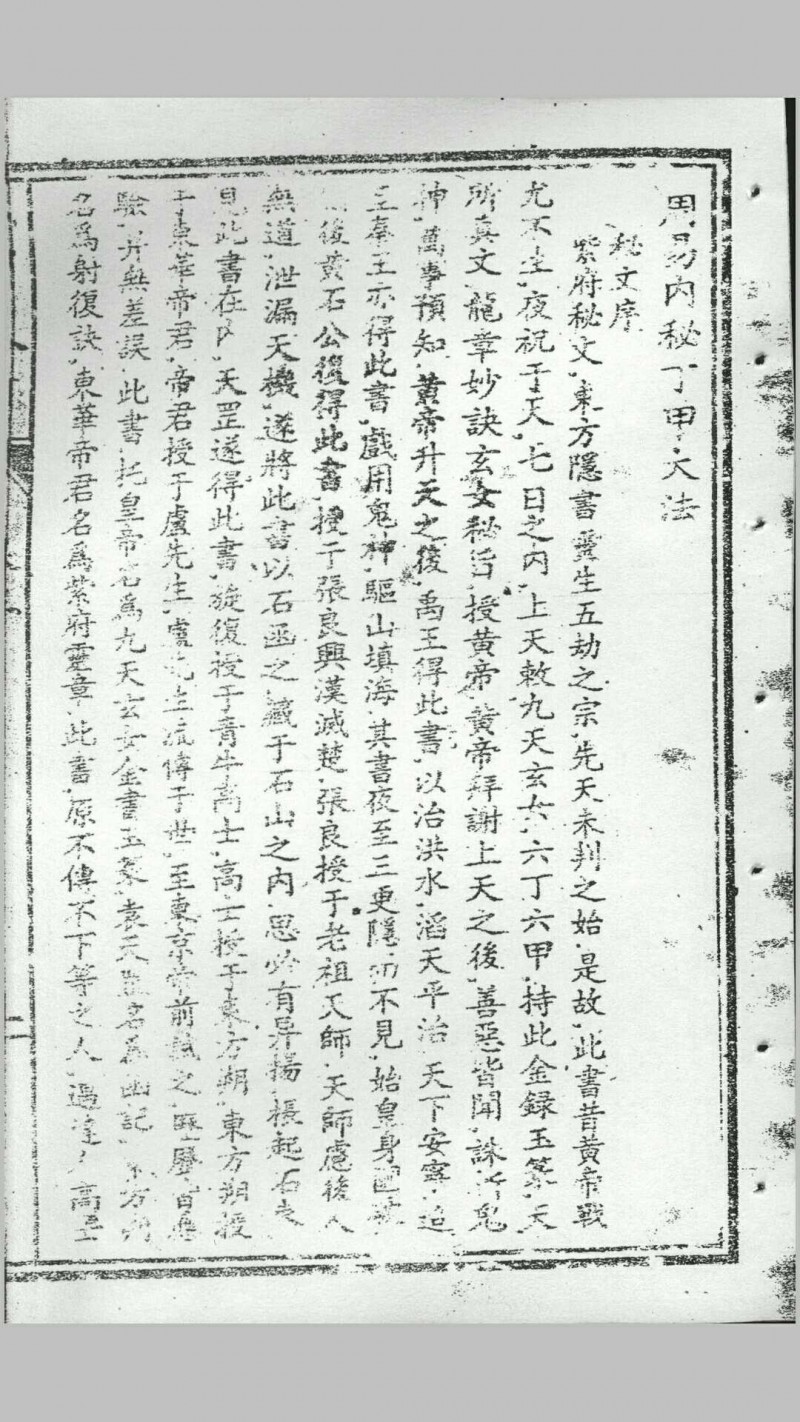 周易內秘丁甲大法
秘文序
紫府秘文東方隱書靈生五劫之宗先天未判之始是故此書昔黃帝戰
尤不生夜祝于天七日之內上天敕九天玄女六丁六甲持此金録玉篆天
所真文龍章妙訣玄女秘旨授黃帝黃帝拜謝上天之後善惡皆聞誅斬鬼
神萬事預知黃帝升天之後禹王得此書以治洪水滔天平治天下安寧迨
王奉王亦得此書戲用鬼神驅山填海其書夜至三更隱不見始皇身
後黃石公復得此書授于張良興漢滅楚張良授于老祖天師天師慮後人
無道泄漏天機遂將此書以石函之藏于石山之內思必有异揚根起石
見此書在天罡遂得此書旋復授于青牛高士高士授于東方朔東方朔授
于東華帝君帝君授于盧先生盧先生流傳于世至東京帝前試之應
驗并無差誤此書托皇帝名爲九天玄女金書玉篆袁天罡名爲函記東方朔
名爲射復訣東華帝君名爲紫府靈章此書原不傳不下等之人過達人高士